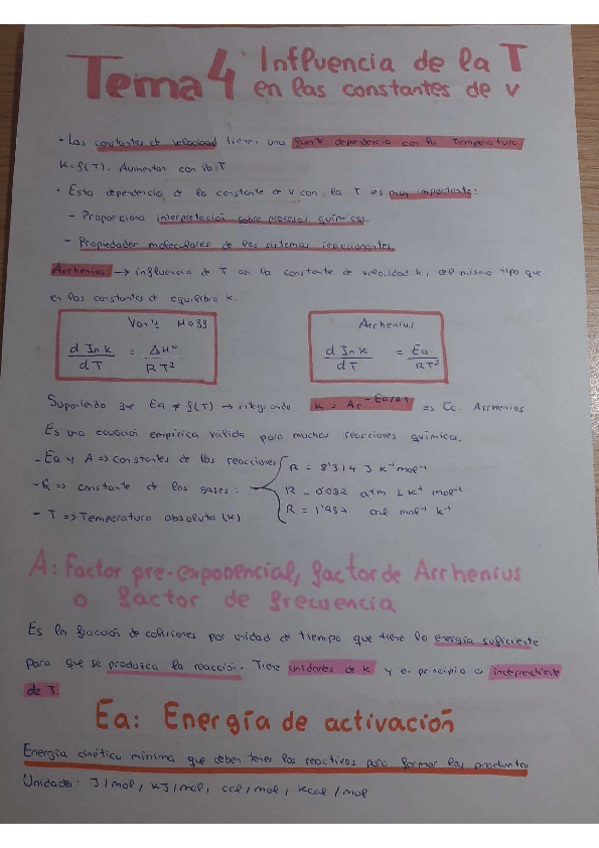 Tema 4 Influencia de la T
en las constantes de v
· Las constantes de velocidad tienen una fuerte dependencia con la Temperatura
K = f(T). Aumentan con la T
· Esta dependencia de la constante de v con la T es muy importante:
- Proporciona interpretación sobre procesos químicos.
- Propiedades moleculares de los sistemas reaccionantes.
Arrhenius → influencia de T en la constante de velocidad k, del mismo tipo que
en las constantes de equilibro k.
Van't Hoff
d ln k / dT = ΔHº / RT²
Arrhenius
d ln k / dT = Ea / RT²
Suponiendo que Ea ≠ f(T) → integrando: K = Ae^-Ea/RT => Cc. Arrhenius
Es una ecuación empírica válida para muchas reacciones químicas.
- Ea y A => constantes de las reacciones
- R => constante de los gases:
- T => Temperatura absoluta (K)
R = 8'314 J K⁻¹ mol⁻¹
R = 0'082 atm L K⁻¹ mol⁻¹
R = 1'987 cal mol⁻¹ K⁻¹
A: Factor pre-exponencial, factor de Arrhenius
o factor de frecuencia
Es la fracción de colisiones por unidad de tiempo que tiene la energía suficiente
para que se produzca la reacción. Tiene unidades de k y en principio es independiente
de T.
Ea: Energía de activación
Energía cinética mínima que deben tener los reactivos para formar los productos
Unidades: J/mol, KJ/mol, cal/mol, kcal/mol